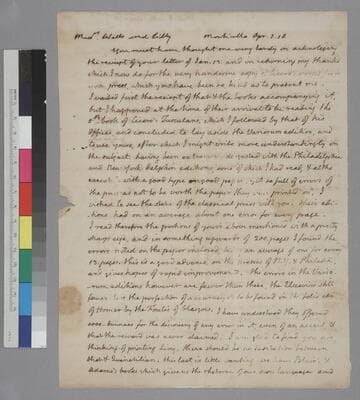 Mess.rs Wells and Lilly Monticello Apr. 1. 18.
You must have thought me very tardy in acknoleging
the receipt of your letter of Jan. 12. and in returning my thanks
which I now do for the very handsome copy of Cicero's works from
your press, which you have been so kind as to present me.
I waited first the receipt of the books accompanying it,
but I happened at the time of their arrival to be reading the
5th book of Cicero's Tusculans, which I followed by that of his
Offices, and concluded to lay aside the Variorum edition, and
to use yours, after which I might write more understandingly on
the subject. having been extremely disgusted with the Philadelphia
and New York Delphin editions, some of which I had read,
executed with a good type on good paper, yet so full of errors of
the press as not to be worth the paper they were printed on, I
wished to see the state of the classical press with you. their edi-
tions had on an average about one error for every page.
I read therefore the portions of yours above mentioned with a pretty
sharp eye, and in something upwards of 200 pages I found the
errors noted on the paper inclosed, being an average of one for every
13. pages. this is a good advance on the presses of N. Y. & Philada.
and gives hopes of rapid improvement. the errors in the Vario-
rum editions however are fewer than these, the Elzevirs still
fewer. but the perfection of accuracy is to be found in the folio edn
of Homer by the Foulis of Glasgow. I have understood they offered
1000. Guineas for the discovery of any error in it, even of an accent, &
that the reward was never claimed. I am glad to find you are
thinking of printing Livy. there should be no hesitation between
that & Quinctilian. this last is little wanting. we have Blair's, &
Adams's books which give us the rhetoric of our own language and